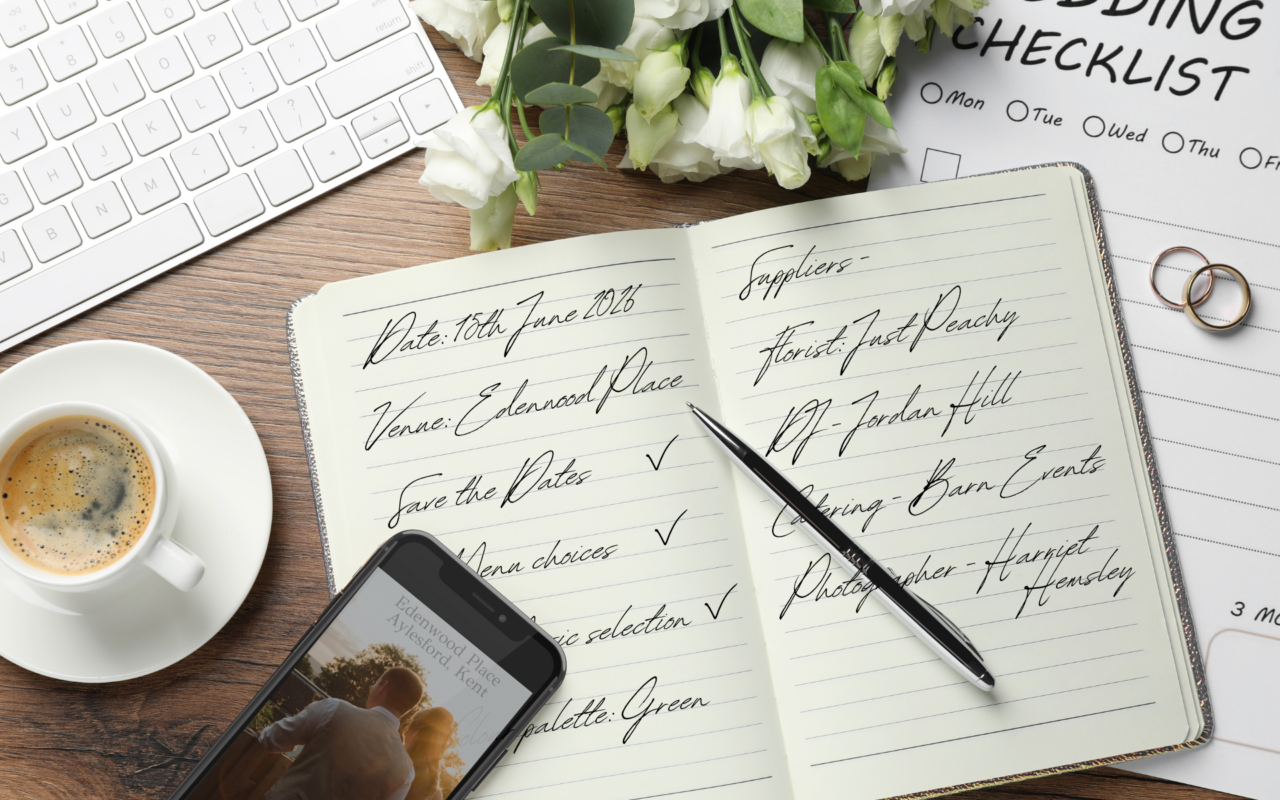 CHECKLIST
Mon Tue Wed Thu
Date: 15th June 2026
Venue: Edenwood Place
Save the Dates ✓
Menu choices ✓
selection ✓
palette: Green
Suppliers -
Florist: Just Peachy
DJ - Jordan Hill
Catering - Barn Events
Photographer - Harriet
Hemsley
Edenwood Place
Aylesford, Kent
3
return
shift